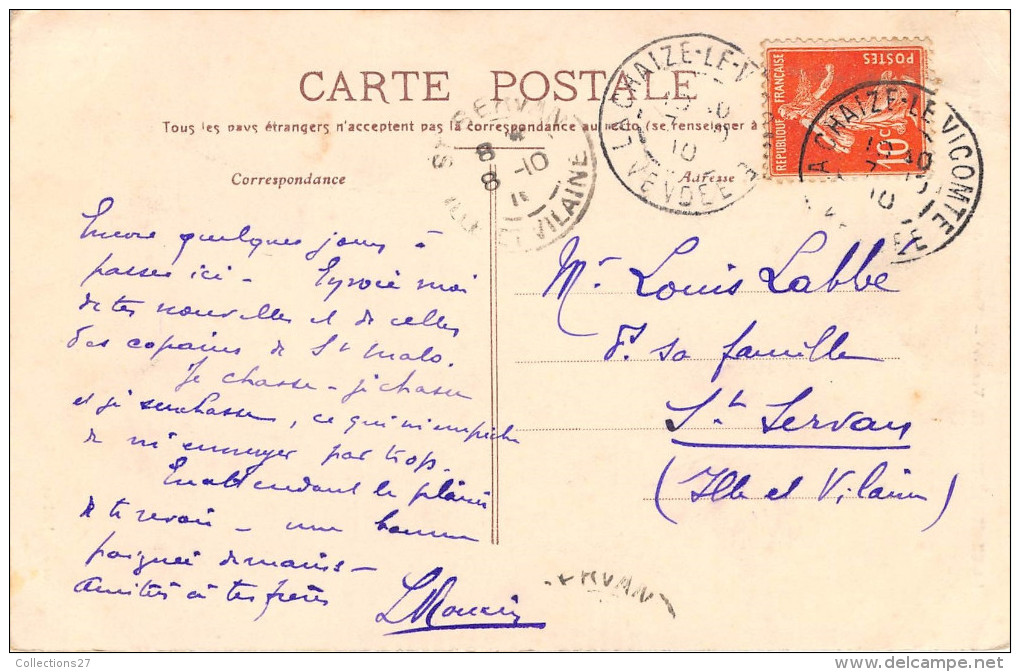 CARTE POSTALE
Tous les pays étrangers n'acceptent pas la correspondance au recto (se renseigner à
Correspondance
Adresse
LA CHAIZE-LE-V
VENDÉE
10
LA CHAIZE-LE-VICOMTE
10
REPUBLIQUE FRANÇAISE
POSTES
10c
ST SERVAN
8 -10
8
ET VILAINE
Encore quelques jours à
passer ici - Envoie moi
de tes nouvelles et de celles
des copains de St Malo.
Je chasse - je chasse
et je surchasse, ce qui m'empêche
de m'ennuyer par trop.
En attendant le plaisir
de te revoir - une bonne
poignée de mains -
Amitiés à tes frères
Mr Louis Labbé
ds sa famille
St Servan
(Ille et Vilaine)
ERVAN
Collections27
delcampe.net